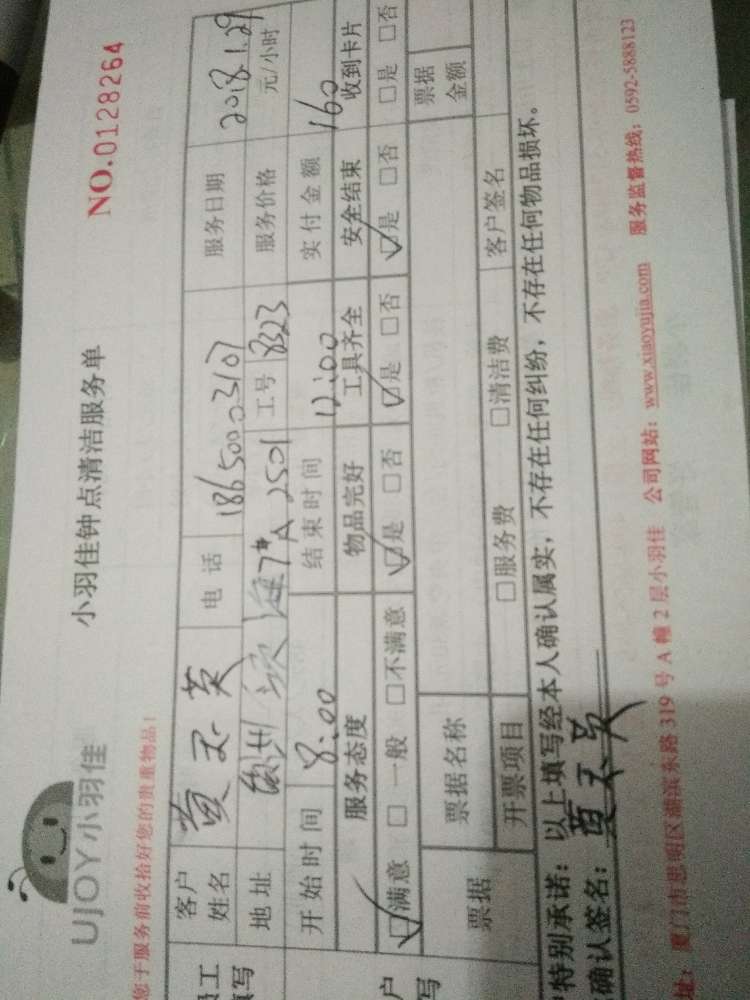 UJOY小羽佳
小羽佳钟点清洁服务单
NO.0128264
您于服务前收拾好您的贵重物品！
客户姓名 黄玉英 电话 18650003107 服务日期 2018.1.29
地址 7# A 2501 工号 8323 服务价格 元/小时
开始时间 8:00 结束时间 12:00 实付金额 160
服务态度 物品完好 工具齐全 安全结束 收到卡片
☑满意 □一般 □不满意 ☑是 □否 ☑是 □否 ☑是 □否 □是 □否
票据 票据名称 票据金额
开票项目 □服务费 □清洁费 客户签名
特别承诺：以上填写经本人确认属实，不存在任何纠纷，不存在任何物品损坏。
确认签名：黄玉英
址：厦门市思明区湖滨东路319号A幢2层小羽佳 公司网站：www.xiaoyujia.com 服务监督热线：0592-5888123